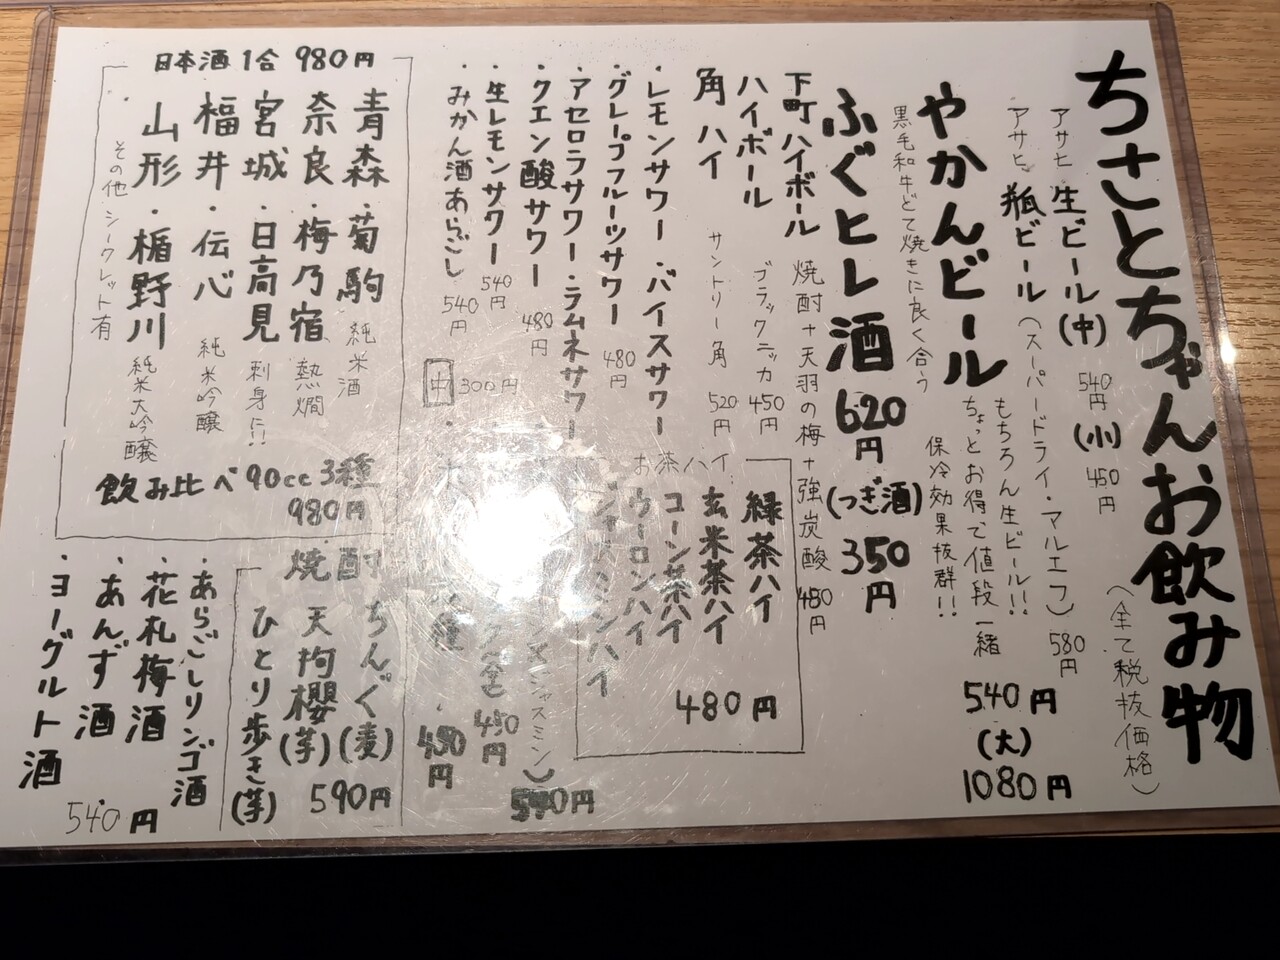 ちさとちゃんお飲み物
（全て税抜価格）
アサヒ 生ビール(中) 540円 (小) 450円
アサヒ 瓶ビール（スーパードライ・マルエフ）580円
やかんビール もちろん生ビール!! ちょっとお得で値段一緒 保冷効果抜群!!
540円
(大)
1080円
黒毛和牛どて焼きに良く合う
ふぐヒレ酒 620円 (つぎ酒) 350円
下町ハイボール 焼酎+天羽の梅+強炭酸 480円
ハイボール ブラックニッカ 450円
角ハイ サントリー角 520円
・レモンサワー・バイスサワー
・グレープフルーツサワー 480円
・アセロラサワー・ラムネサワー
・クエン酸サワー 480円
・生レモンサワー 540円
・みかん酒あらごし 540円
中 300円
お茶ハイ
緑茶ハイ
玄米茶ハイ
コーン茶ハイ
ウーロンハイ
ジャスミンハイ
480円
ジャスミン）
450円
450円
日本酒 1合 980円
青森・菊駒 純米酒
奈良・梅乃宿 熱燗
宮城・日高見 刺身に!!
福井・伝心 純米吟醸
山形・楯野川 純米大吟醸
その他 シークレット有
飲み比べ 90cc 3種
980円
焼酎
ちんぐ(麦)
天拘櫻(芋)
ひとり歩き(芋)
590円
・あらごしリンゴ酒
・花札梅酒
・あんず酒
・ヨーグルト酒
540円